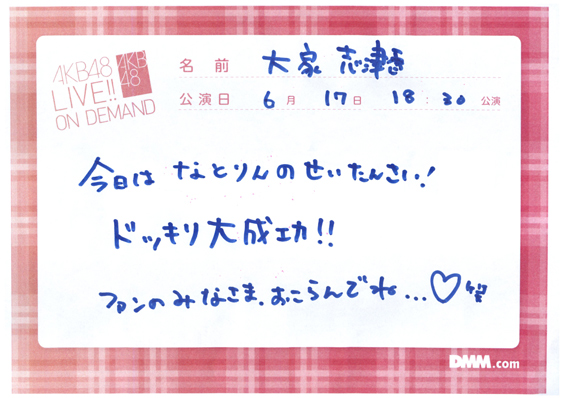 AKB48
LIVE!!
ON DEMAND
AKB
48
名前 大家 志津香
公演日 6月 17日 18:30 公演
今日は なとりんのせいたんさい!
ドッキリ大成功!!
ファンのみなさま、おこらんでね...♡
DMM.com